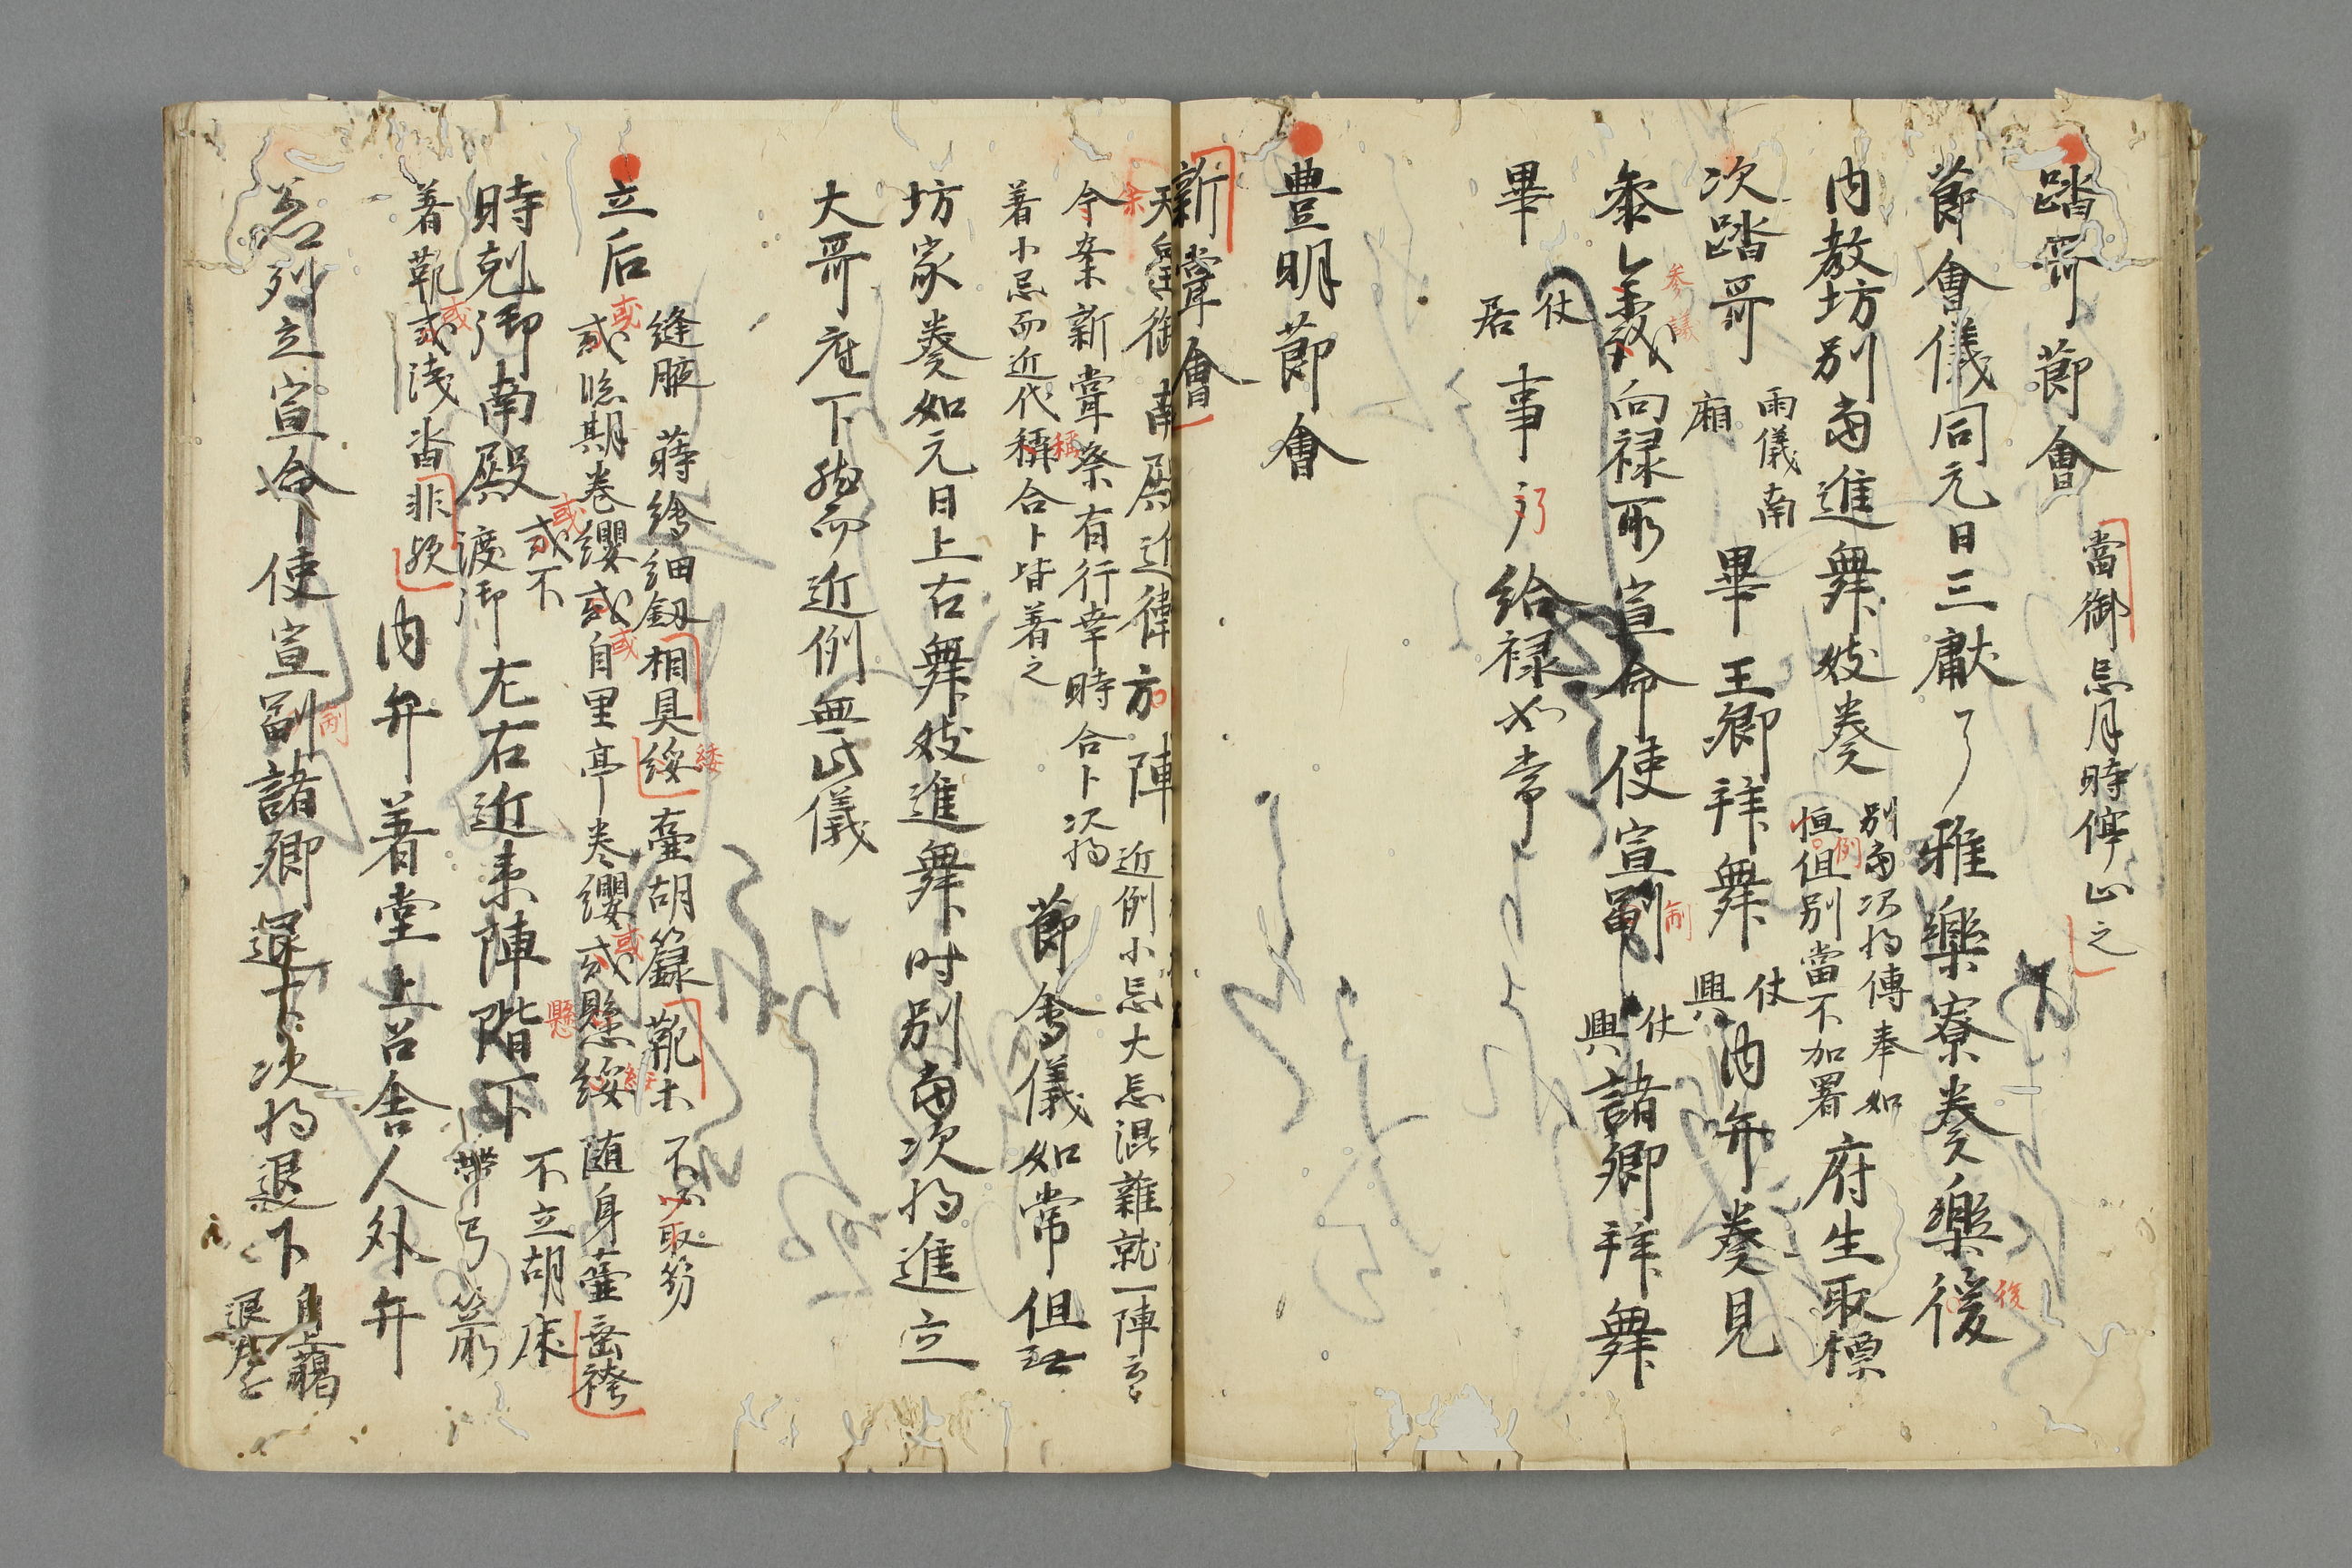 踏哥節會 當御忌月時停止之
節會儀同元日三獻了雅樂寮奏樂後
後
内教坊別當進舞妓奏 別當次将傳奉如
恒但別當不加署 府生取標
例
次踏哥 雨儀南
廂 畢王卿拝舞 仗
興 内弁奏見
参議
参議向禄所宣命使宣制 仗
興 諸卿拝舞
制
畢 仗
居 事了給禄如常
豊明節會
新嘗會
天皇御南殿近衛方陣 近例小忌大忌混雑就一陣云々
今案新嘗祭有行幸時合卜次将
着小忌而近代稱合卜皆着之 節會儀如常但
稱
坊家奏如元日上右舞妓進舞時別當次将進立
大哥座下然而近例無此儀
立后 縫腋蒔繪細釼相具綏壷胡籙靴ホ不取笏
或臨期巻纓或自里亭巻纓或懸綏随身壷垂袴
或
綾
或
或
懸
時剋御南殿 或不
渡御 左右近末陣階下 不立胡床
帯弓箭
或
着靴或浅沓非歟内弁着堂上召舎人外弁
或
若列立宣命使宣制諸卿退下次将退下 自上臈
退
制